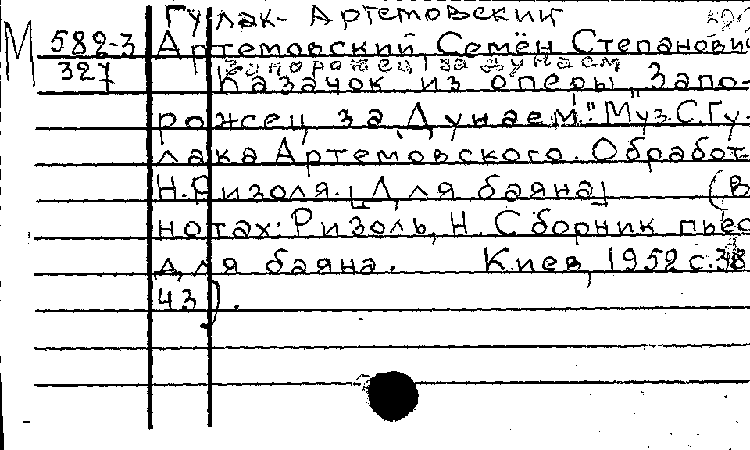 Гулак-Артемовский
М 582-3 Артемовский Семён Степанови
Запорожец за Дунаем
327 Казачок из оперы „Запо-
рожец за Дунаем". Муз. С. Гу-
лака Артемовского. Обработ.
Н. Ризоля. [Для баяна] (В
нотах: Ризоль, Н. Сборник пьес
для баяна. Киев, 1952 с. 38
43).